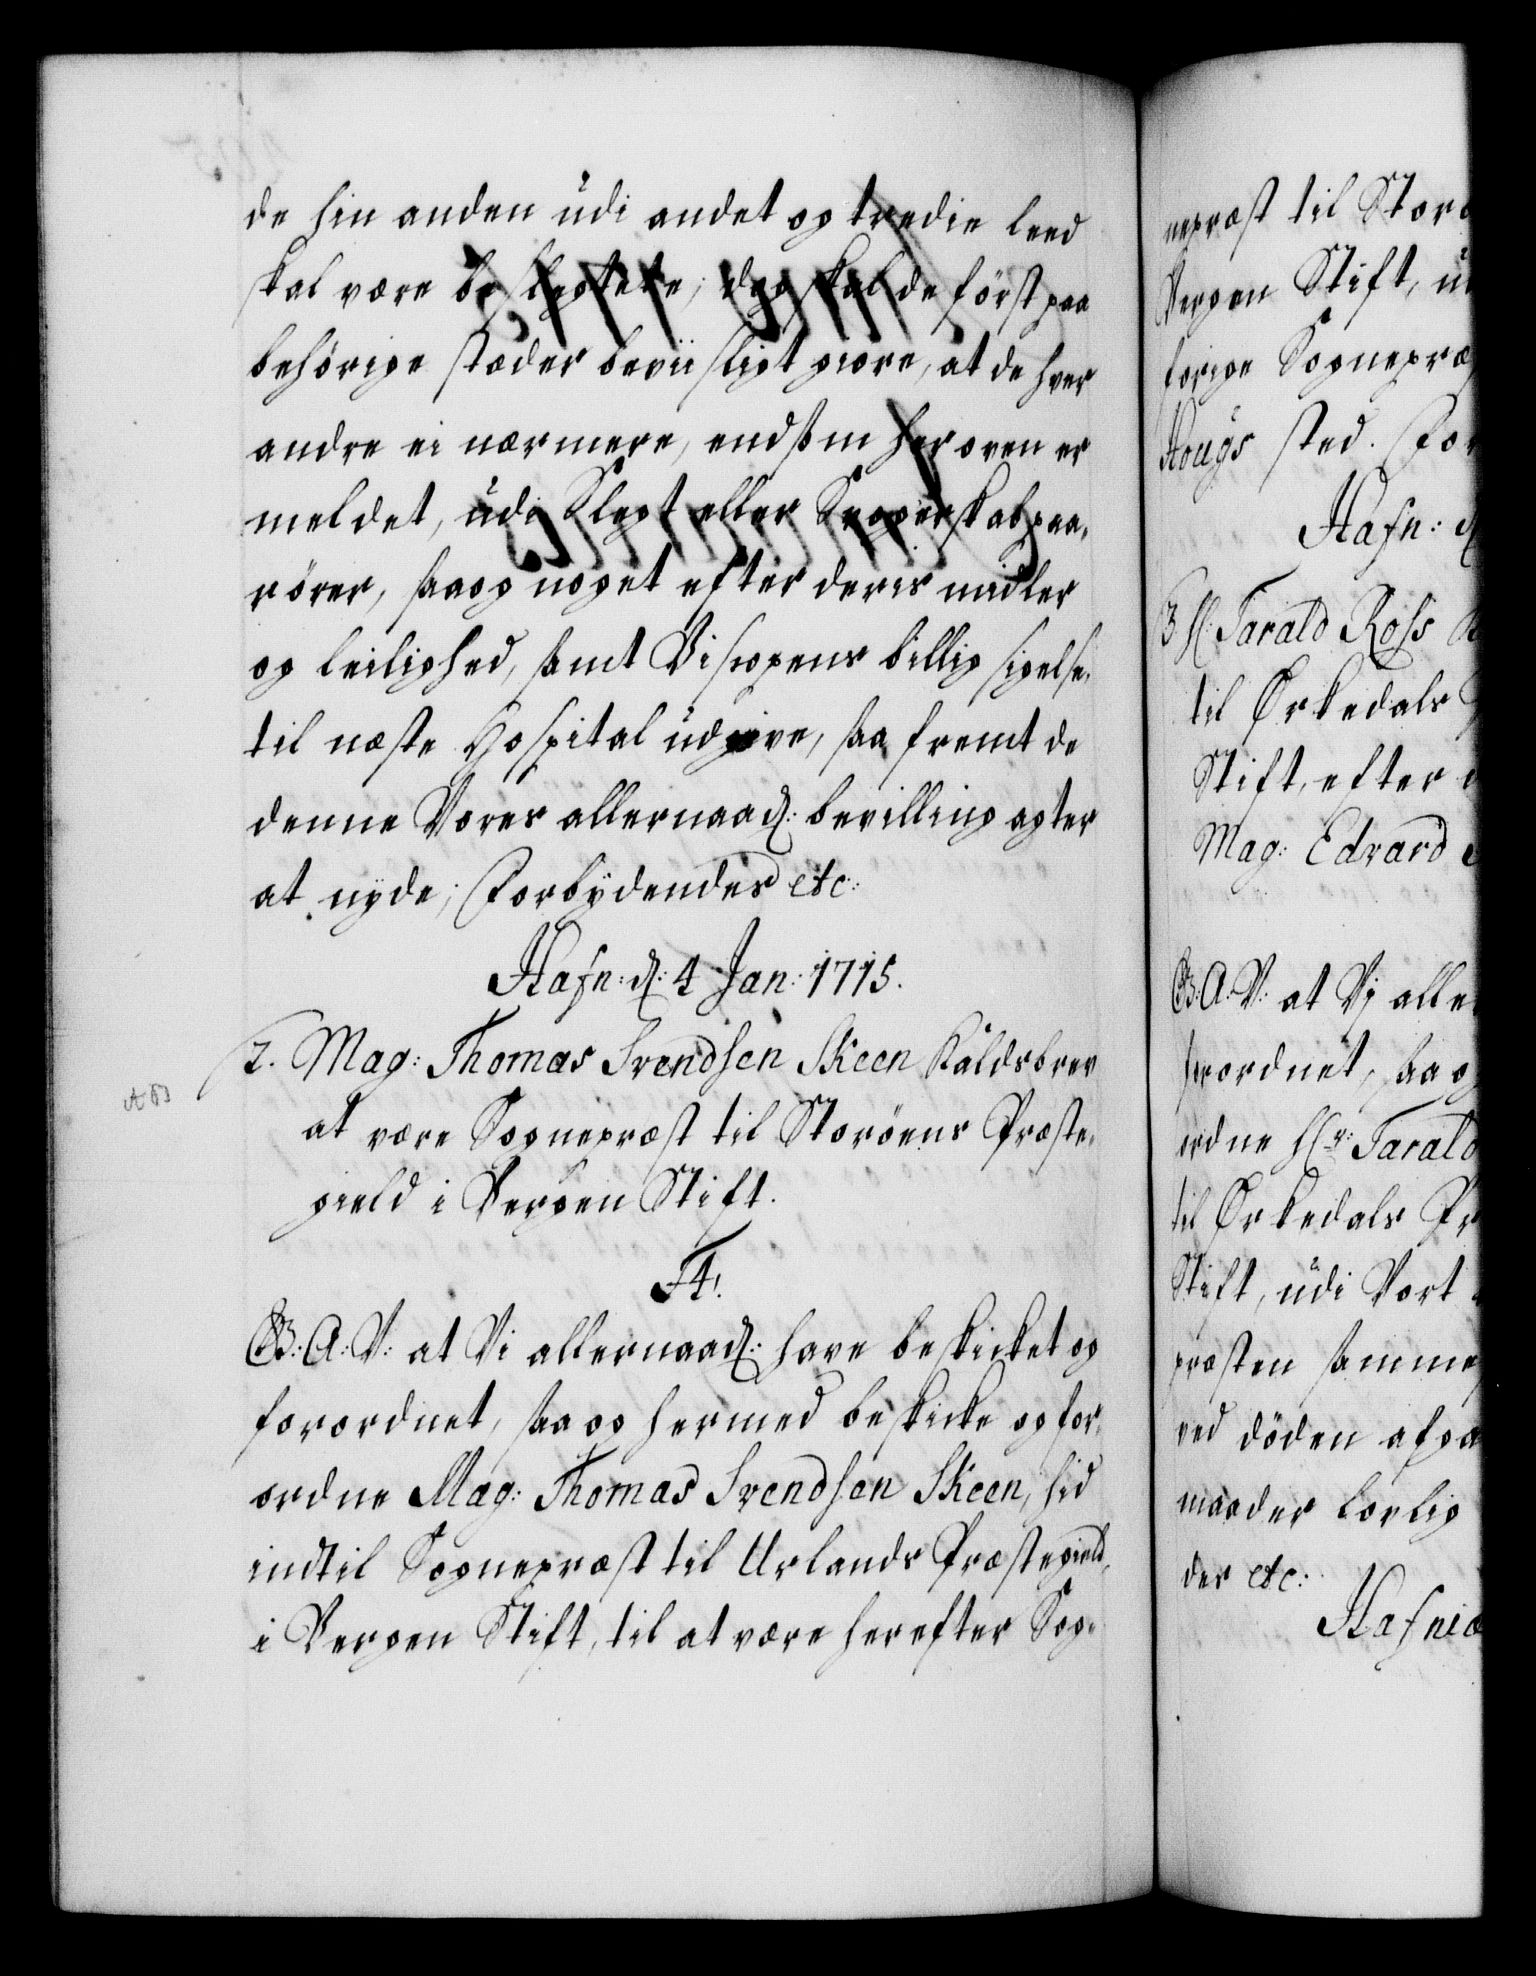 de hin anden udi andet og tredie leed
skal være beslegtede; dog skal de först paa
behörige stæder beviisligt giöre, at de hver
andre ei nærmere, end som her oven er
meldet, udi Slegt eller Svogerskab paa-
rörer, saa og noget efter deris midler
og leilighed, samt Biscopens billig sigelse,
til næste Hospital udgive, saa fremt de
denne Vores allernaad: bevilling agter
at nyde; Forbydendes etc:
Hafn: d: 4 Jan: 1715.
2. Mag: Thomas Svendsen Skeen Kaldsbrev
at være Sognepræst til Storöens Præste-
gield i Bergen Stift.
F4!
G: A: V: at Vi allernaad: have beskicket og
forordnet, saa og hermed beskicke og for-
ordne Mag: Thomas Svendsen Skeen, hid
indtil Sognepræst til Urlands Præstegield,
i Bergen Stift, til at være herefter Sog-
nepræst til Stor
Bergen Stift, u
forige Sognepræ
Hougs sted. For
Hafn: d
3 H: Tarald Ross
til Ørkedals
Stift, efter
Mag: Edvard
G: A: V: at Vj alle
forordnet, saa og
ordne Hr: Tarald
til Ørkedals Pr
Stift, udi Vort
præsten samme
ved döden afga
maader lovlig
des etc:
Hafniæ